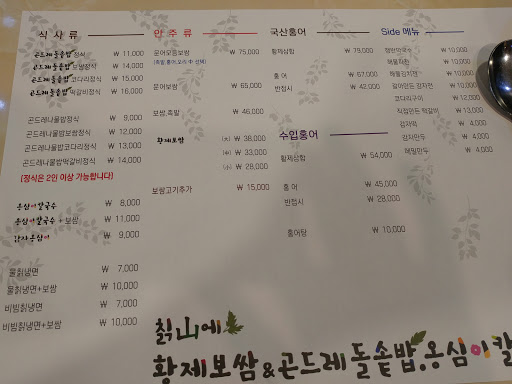 식 사 류
곤드레돌솥밥정식 ₩ 11,000
곤드레돌솥밥보쌈정식 ₩ 14,000
곤드레돌솥밥코다리정식 ₩ 15,000
곤드레돌솥밥떡갈비정식 ₩ 16,000
곤드레나물밥정식 ₩ 9,000
곤드레나물밥보쌈정식 ₩ 12,000
곤드레나물밥코다리정식 ₩ 13,000
곤드레나물밥떡갈비정식 ₩ 14,000
(정식은 2인 이상 가능합니다)
옹심이칼국수 ₩ 8,000
옹심이칼국수 + 보쌈 ₩ 11,000
감자옹심이 ₩ 9,000
물칡냉면 ₩ 7,000
물칡냉면+보쌈 ₩ 10,000
비빔칡냉면 ₩ 7,000
비빔칡냉면+보쌈 ₩ 10,000
안 주 류
문어모듬보쌈 ₩ 75,000
(족발,홍어,오리 中 선택)
문어보쌈 ₩ 65,000
보쌈,족발 ₩ 46,000
황제보쌈 (大) ₩ 38,000
(中) ₩ 33,000
(小) ₩ 28,000
보쌈고기추가 ₩ 15,000
국산홍어
황제삼합 ₩ 79,000
홍 어 ₩ 67,000
반접시 ₩ 42,000
수입홍어
황제삼합 ₩ 54,000
홍 어 ₩ 45,000
반접시 ₩ 28,000
홍어탕 ₩ 10,000
Side 메뉴
쟁반막국수 ₩ 10,000
해물파전 ₩ 10,000
해물김치전 ₩ 10,000
갈아만든 감자전 ₩ 10,000
코다리구이 ₩ 12,000
직접만든 떡갈비 ₩ 13,000
감자떡 ₩ 4,000
감자만두 ₩ 4,000
메밀만두 ₩ 4,000
칡山에
황제보쌈&곤드레돌솥밥.옹심이칼